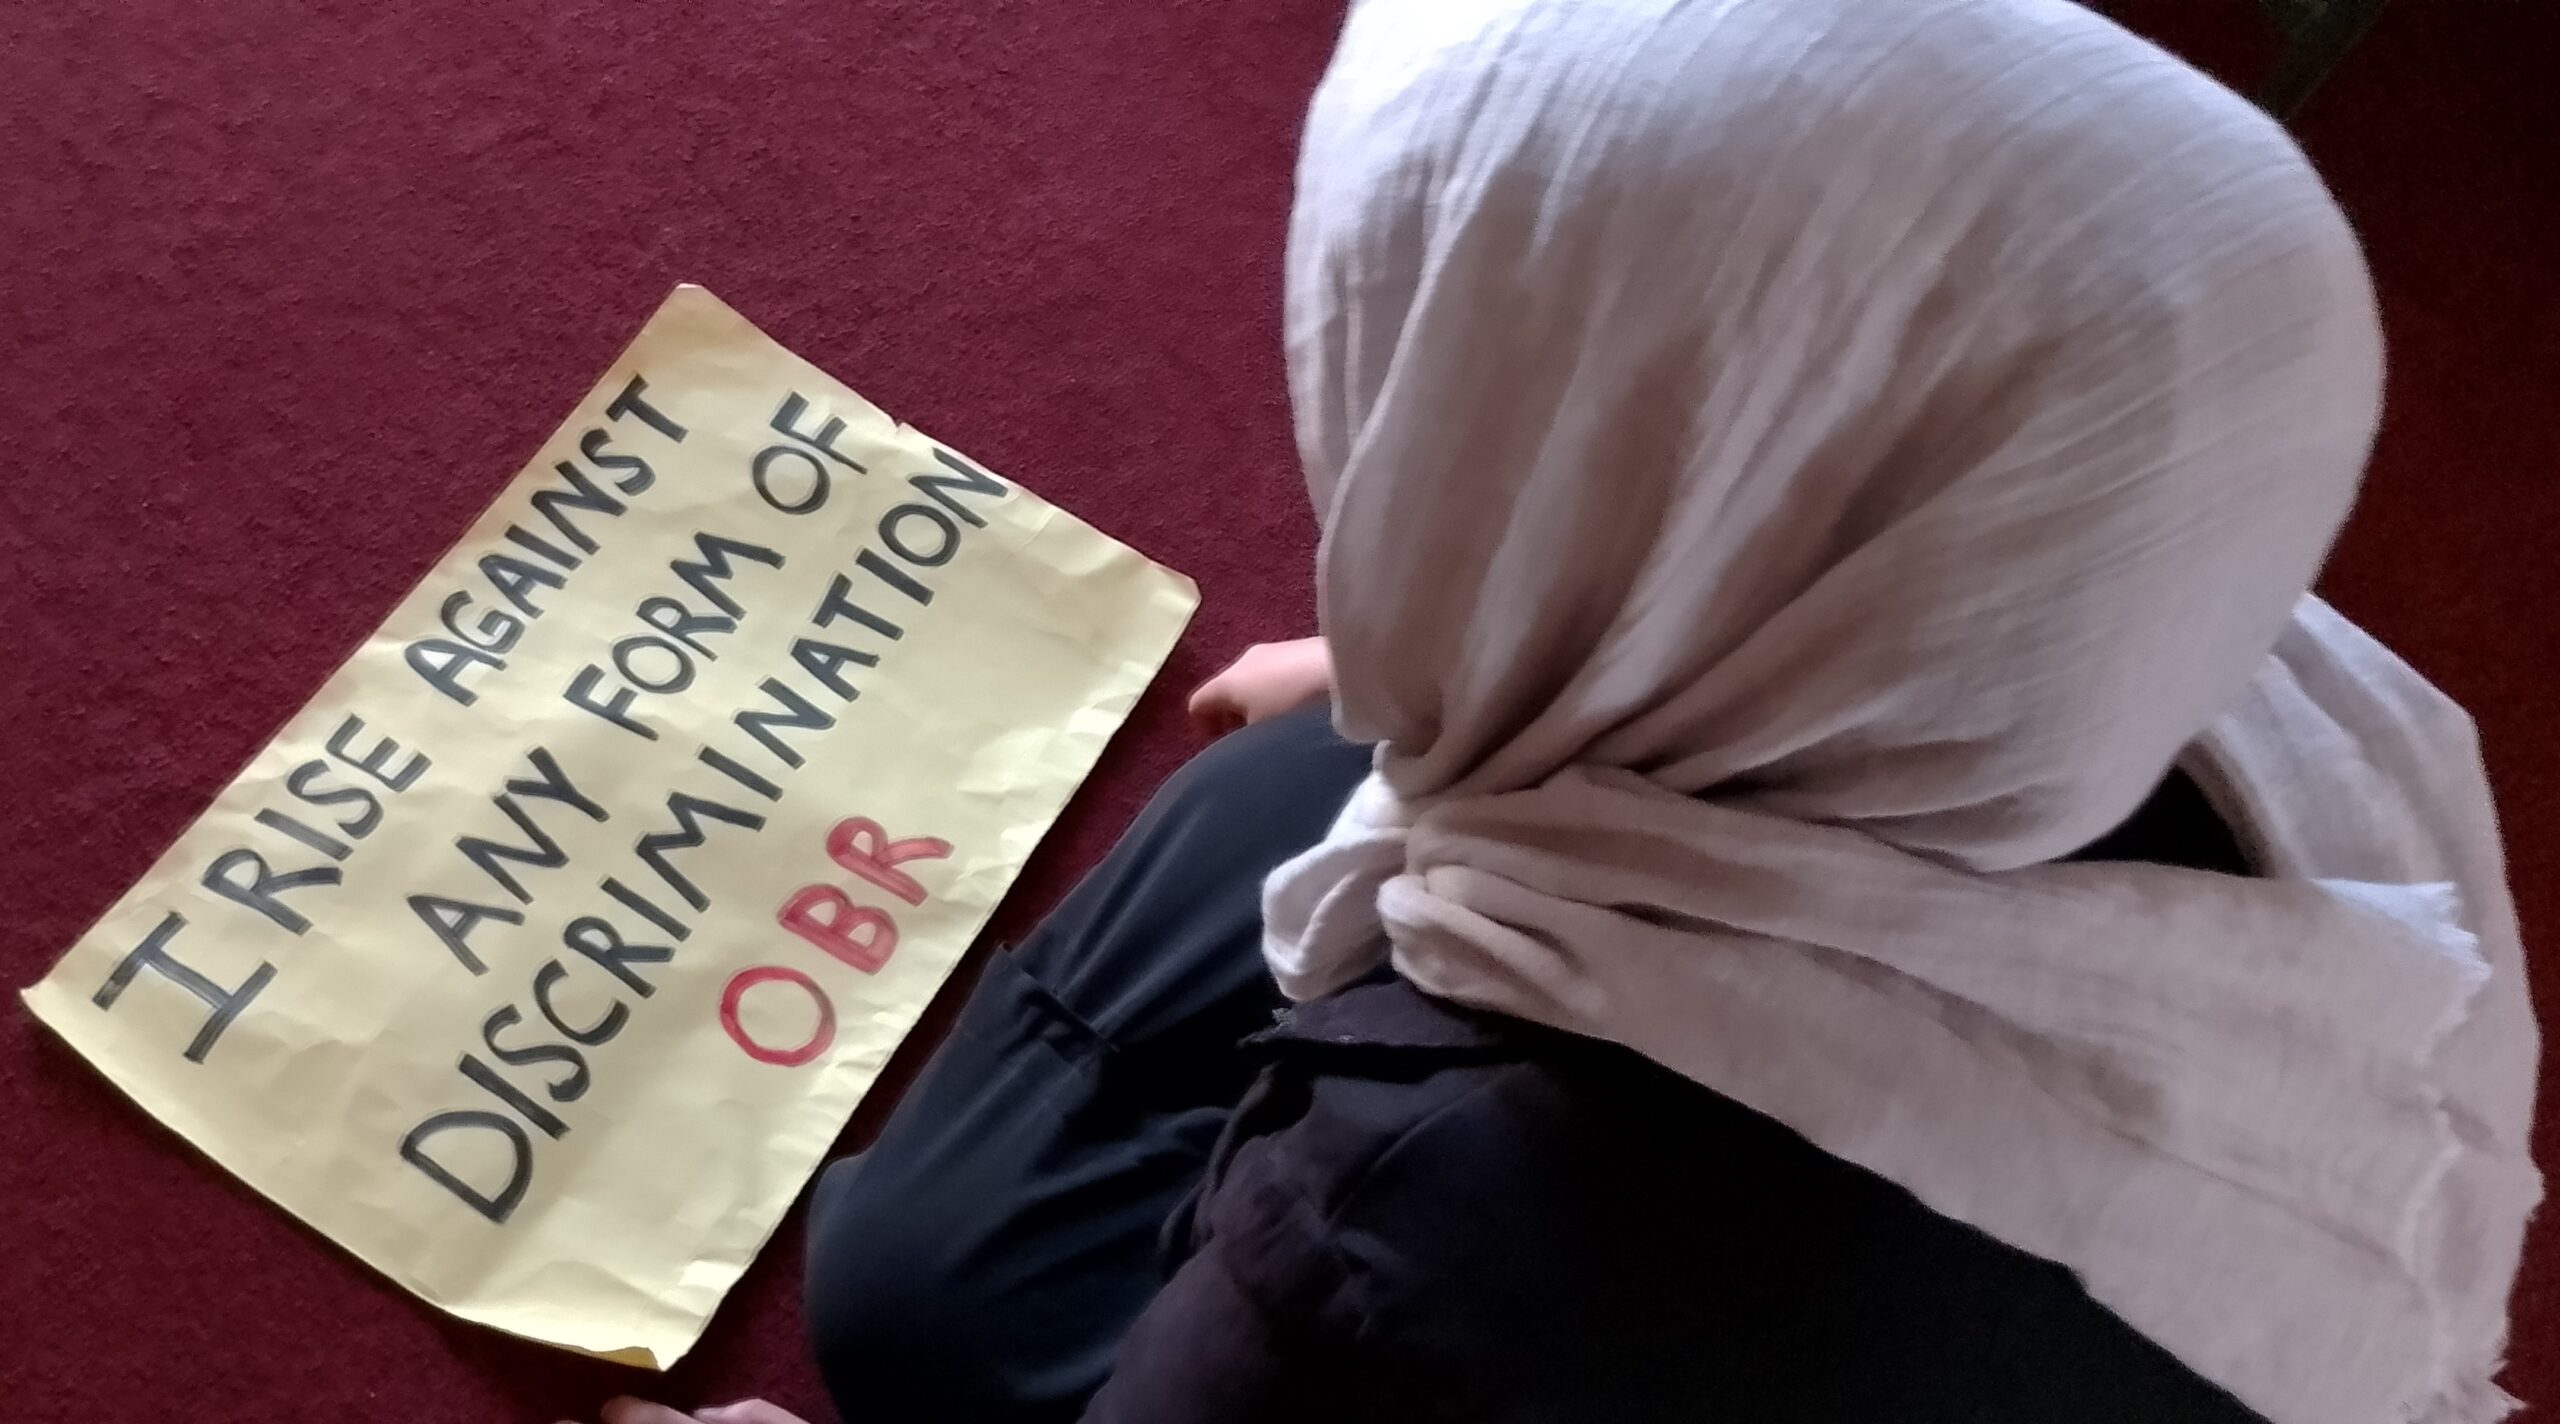 I RISE AGAINST
ANY FORM OF
DISCRIMINATION
OBR